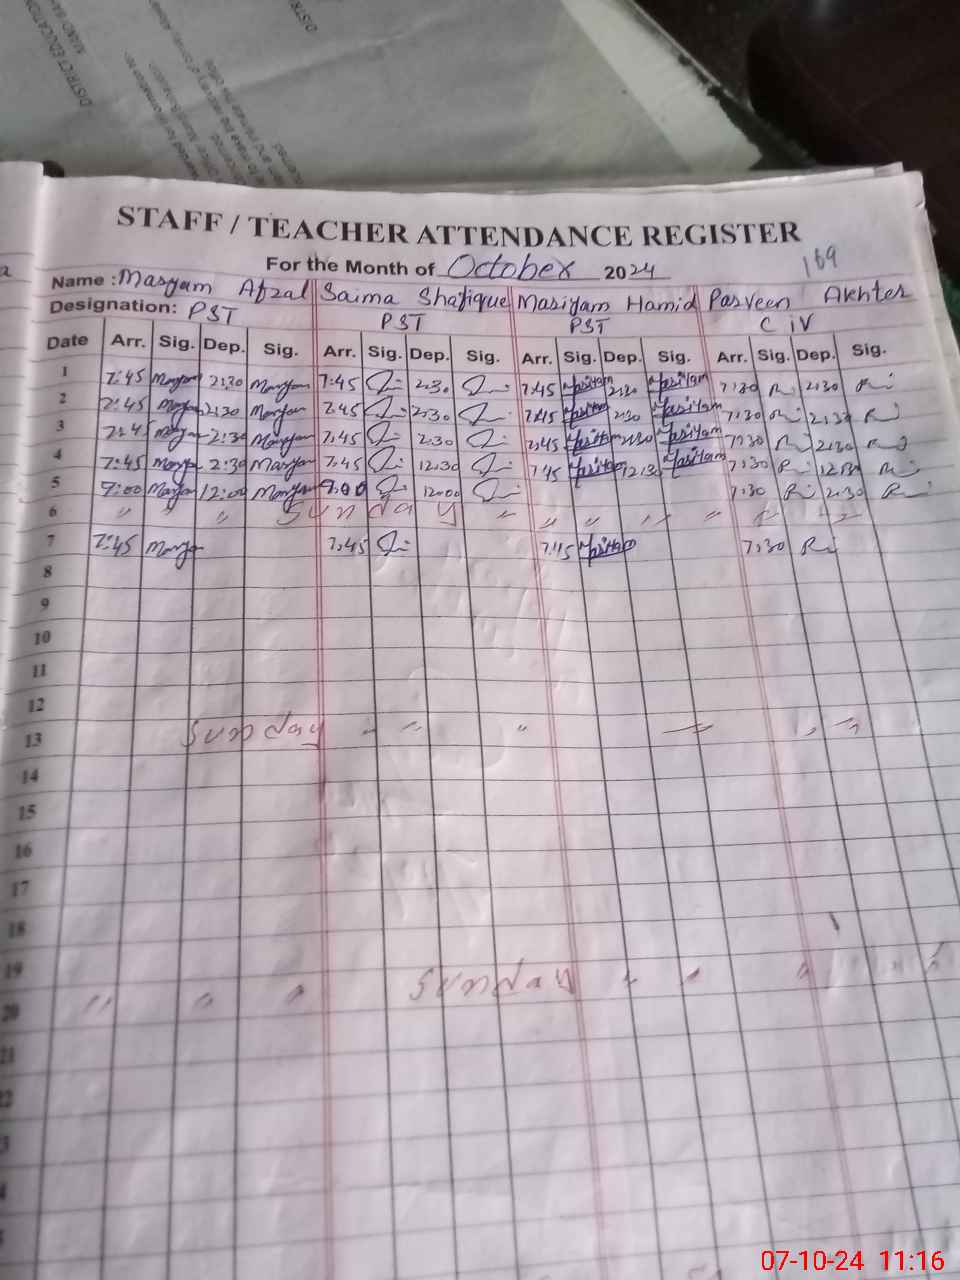 DISTRICT EDUCATION
DISTRICT
STAFF / TEACHER ATTENDANCE REGISTER
For the Month of October 2024
169
Name : Maryam Afzal Saima Shafique Mariyam Hamid Parveen Akhter
Designation: PST PST PST C iV
Date Arr. Sig. Dep. Sig. Arr. Sig. Dep. Sig. Arr. Sig. Dep. Sig. Arr. Sig. Dep. Sig.
1 7:45 Maryam 2:30 Maryam 7:45 2:30 7:45 Mariyam 2:30 Mariyam 7:30 2:30
2 7:45 Maryam 2:30 Maryam 7:45 2:30 7:45 Mariyam 2:30 Mariyam 7:30 2:30
3 7:45 Maryam 2:30 Maryam 7:45 2:30 7:45 Mariyam 2:30 Mariyam 7:30 2:30
4 7:45 Maryam 2:30 Maryam 7:45 12:30 7:45 Mariyam 12:30 Mariyam 7:30 12:30
5 9:00 Maryam 12:00 Maryam 9:00 12:00 7:30 2:30
6 " " " Sunday " " " " "
7 7:45 Maryam 7:45 7:45 Mariyam 7:30
8
9
10
11
12
13 Sunday " " " " " "
14
15
16
17
18
19
20 " " " Sunday " " " "
21
07-10-24 11:16